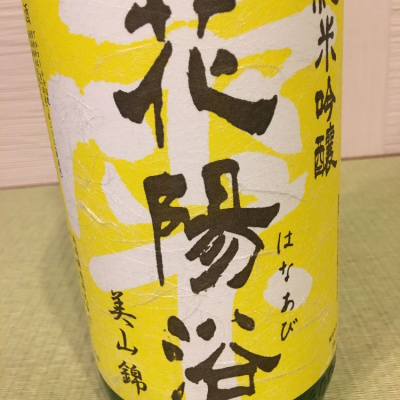 純米吟醸
花陽浴
はなあび
美山錦